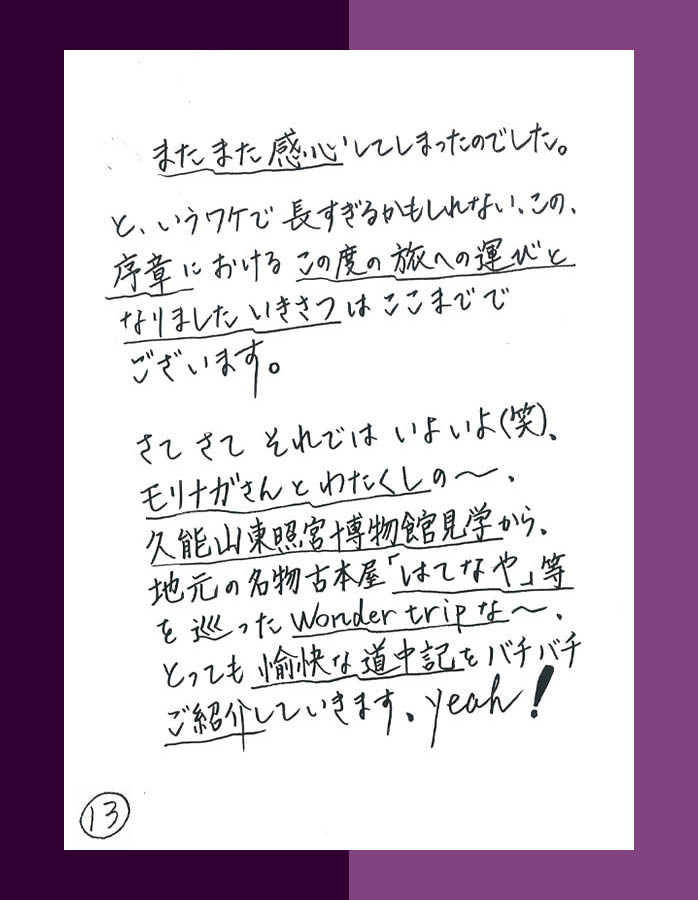 またまた感心してしまったのでした。
と、いうワケで長すぎるかもしれない、この、
序章における この度の旅への運びと
なりました いきさつは ここまでで
ございます。
さて さて それでは いよいよ(笑)、
モリナガさんとわたくしの〜、
久能山東照宮博物館見学から、
地元の名物古本屋「はてなや」等
を巡ったWonder tripな〜、
とっても愉快な道中記をバチバチ
ご紹介していきます。yeah!
13